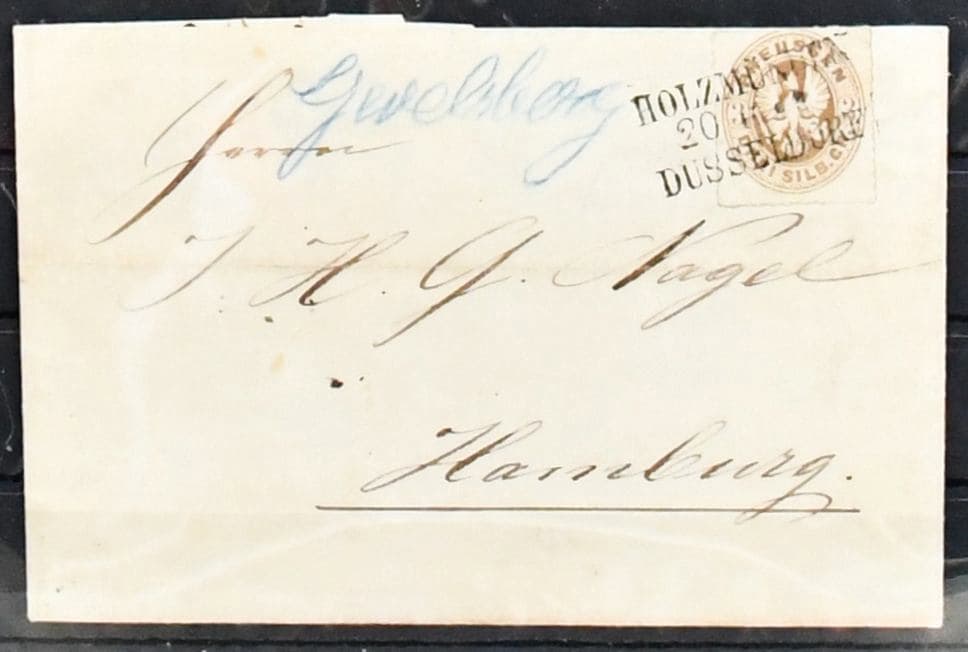 Gevelsberg
Herrn
J. H. G. Nagel
Hamburg.
HOLZMINDEN
20
DUSSELDORF
PREUSSEN
3 3
DREI SILB. GR.